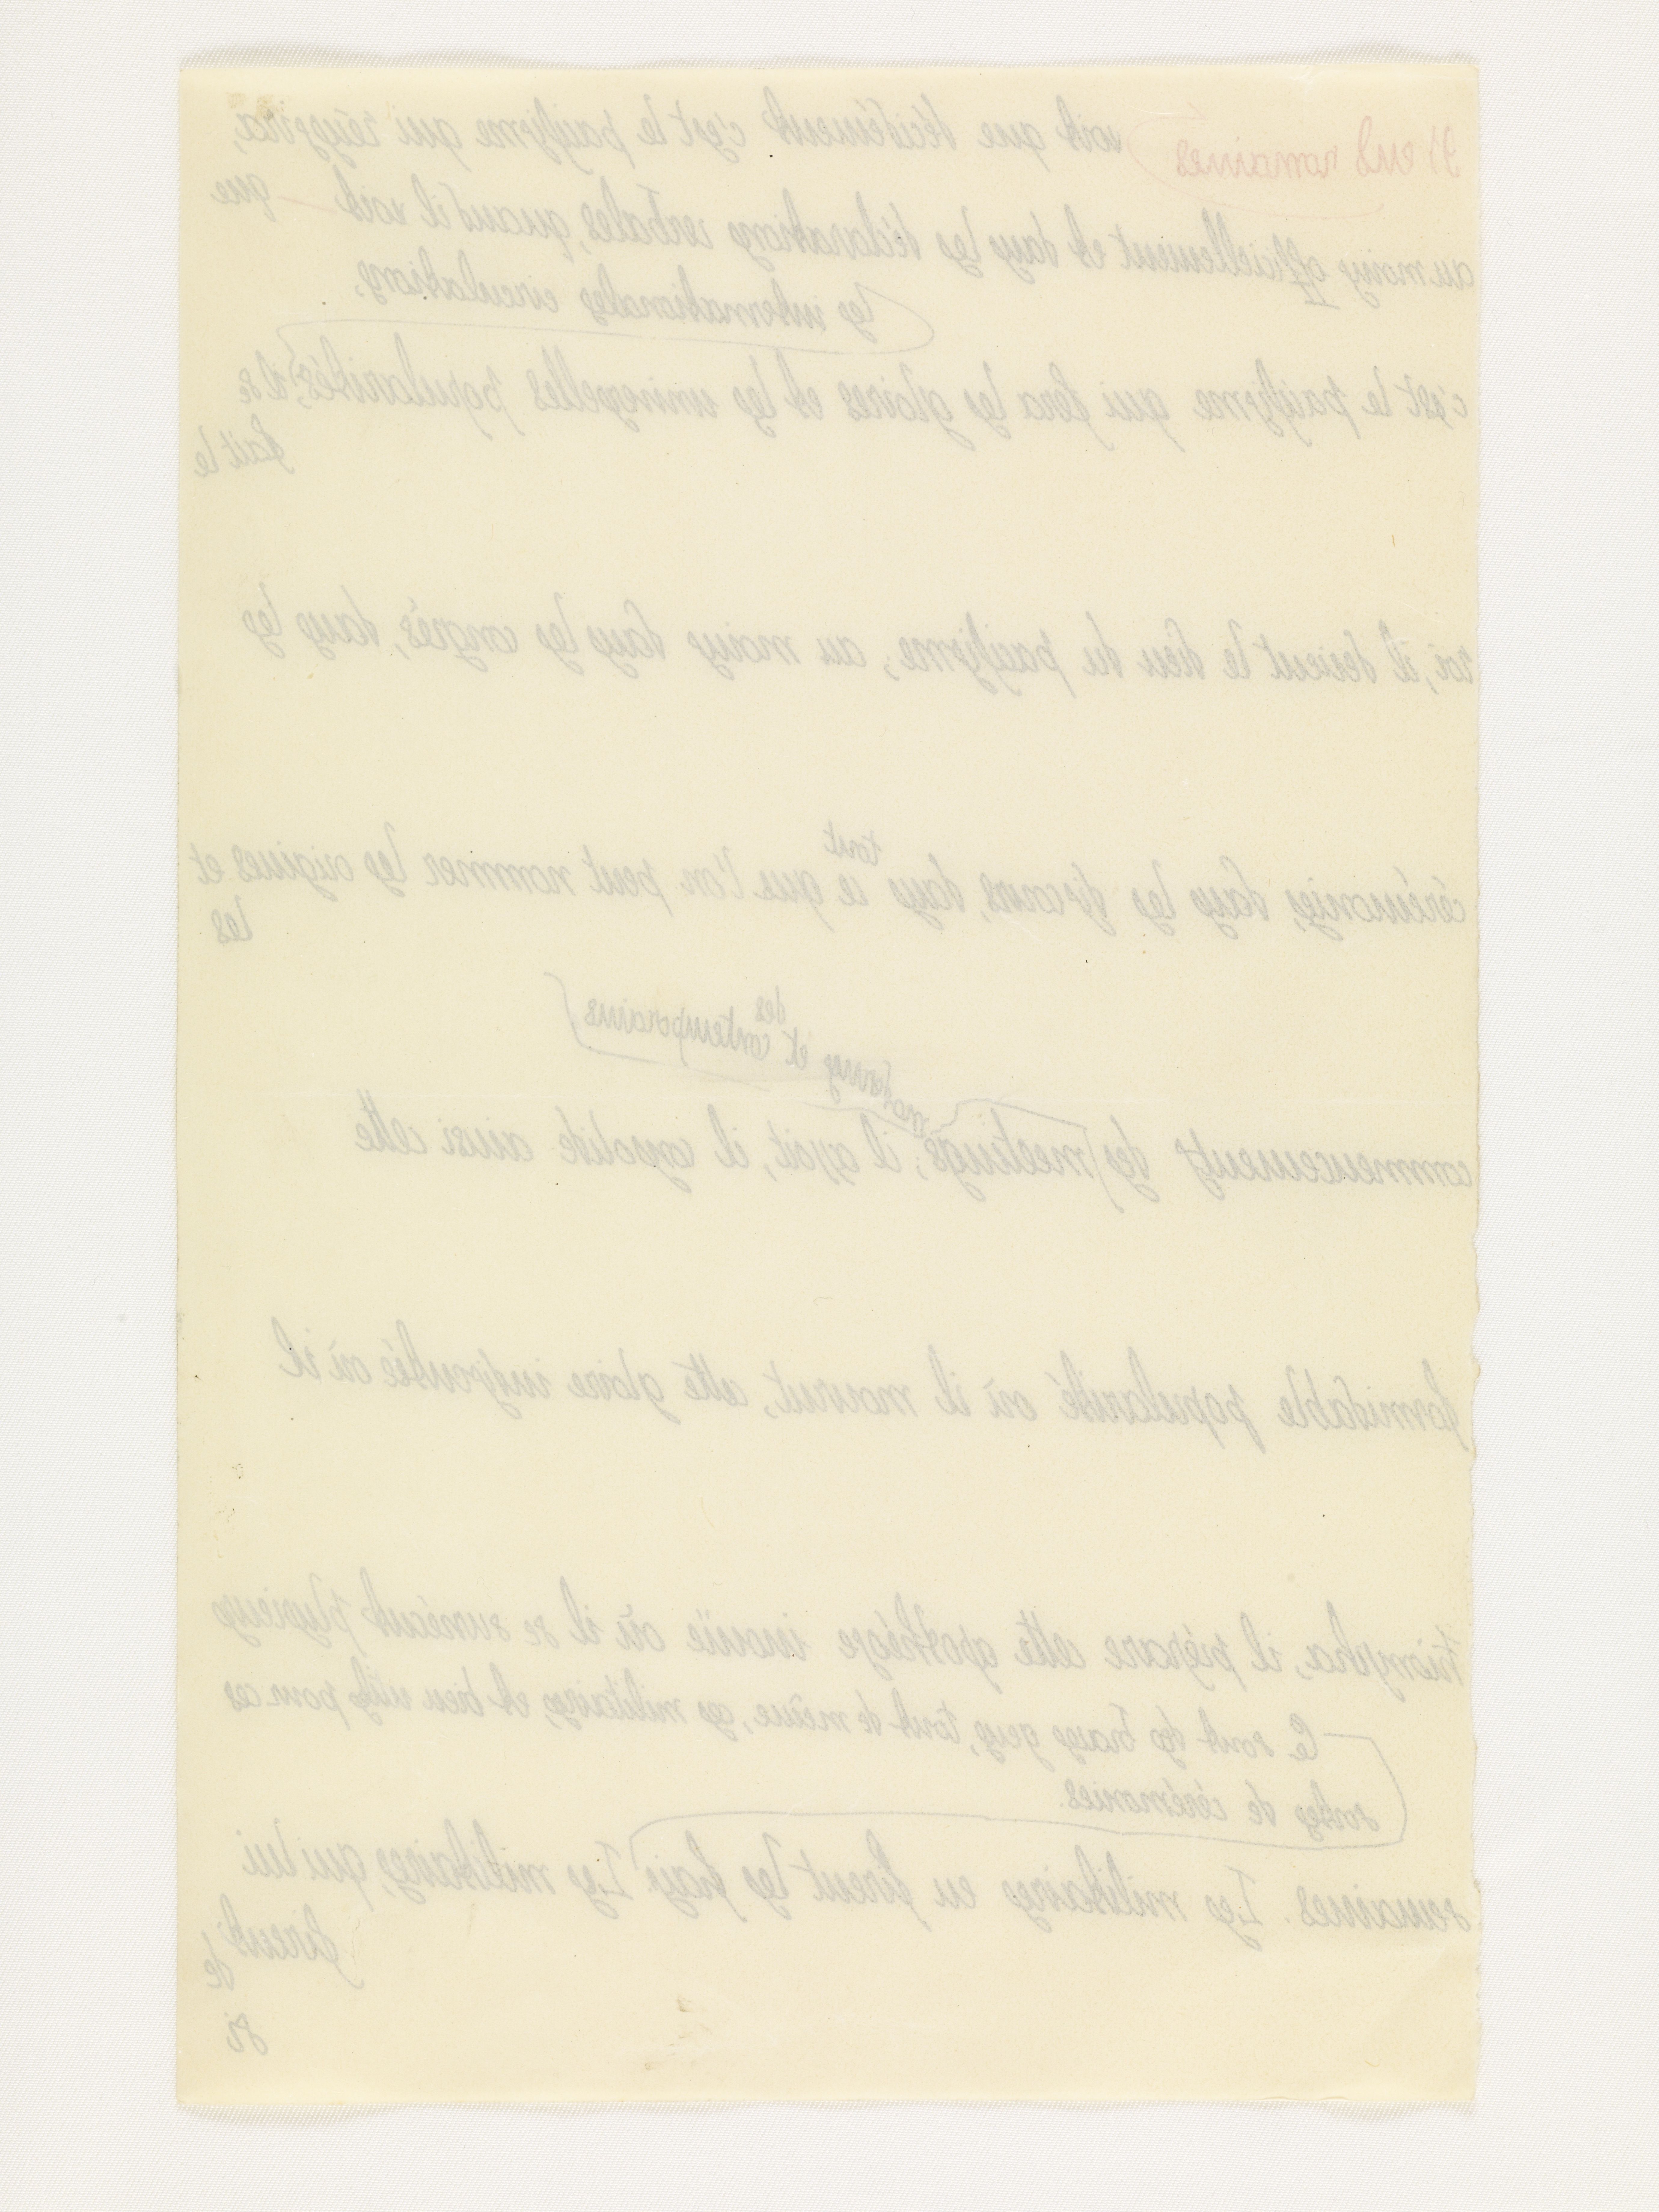 voit que décidément c'est le pacifisme qui réussira,
au moins officiellement et dans les déclarations verbales, quand il voit que
les internationales circulations.
c'est le pacifisme qui fera les gloires et les universelles popularités, il se
fait le
roi, il devient le dieu du pacifisme, au moins dans les congrès, dans les
tout
cérémonies, dans les discours, dans ce que l'on peut nommer les origines et
les
des
modernes et contemporains
commencements des meetings; il assoit, il consolide ainsi cette
formidable popularité où il mourut, cette gloire incroyable où il
triompha, il prépare cette apothéose inouïe où il se survécut plusieurs
Ce sont des braves gens, tout de même, ces militaires, et bien utiles pour ces
sortes de cérémonies.
semaines. Les militaires en firent les frais. Les militaires, qui lui
firent
de
si